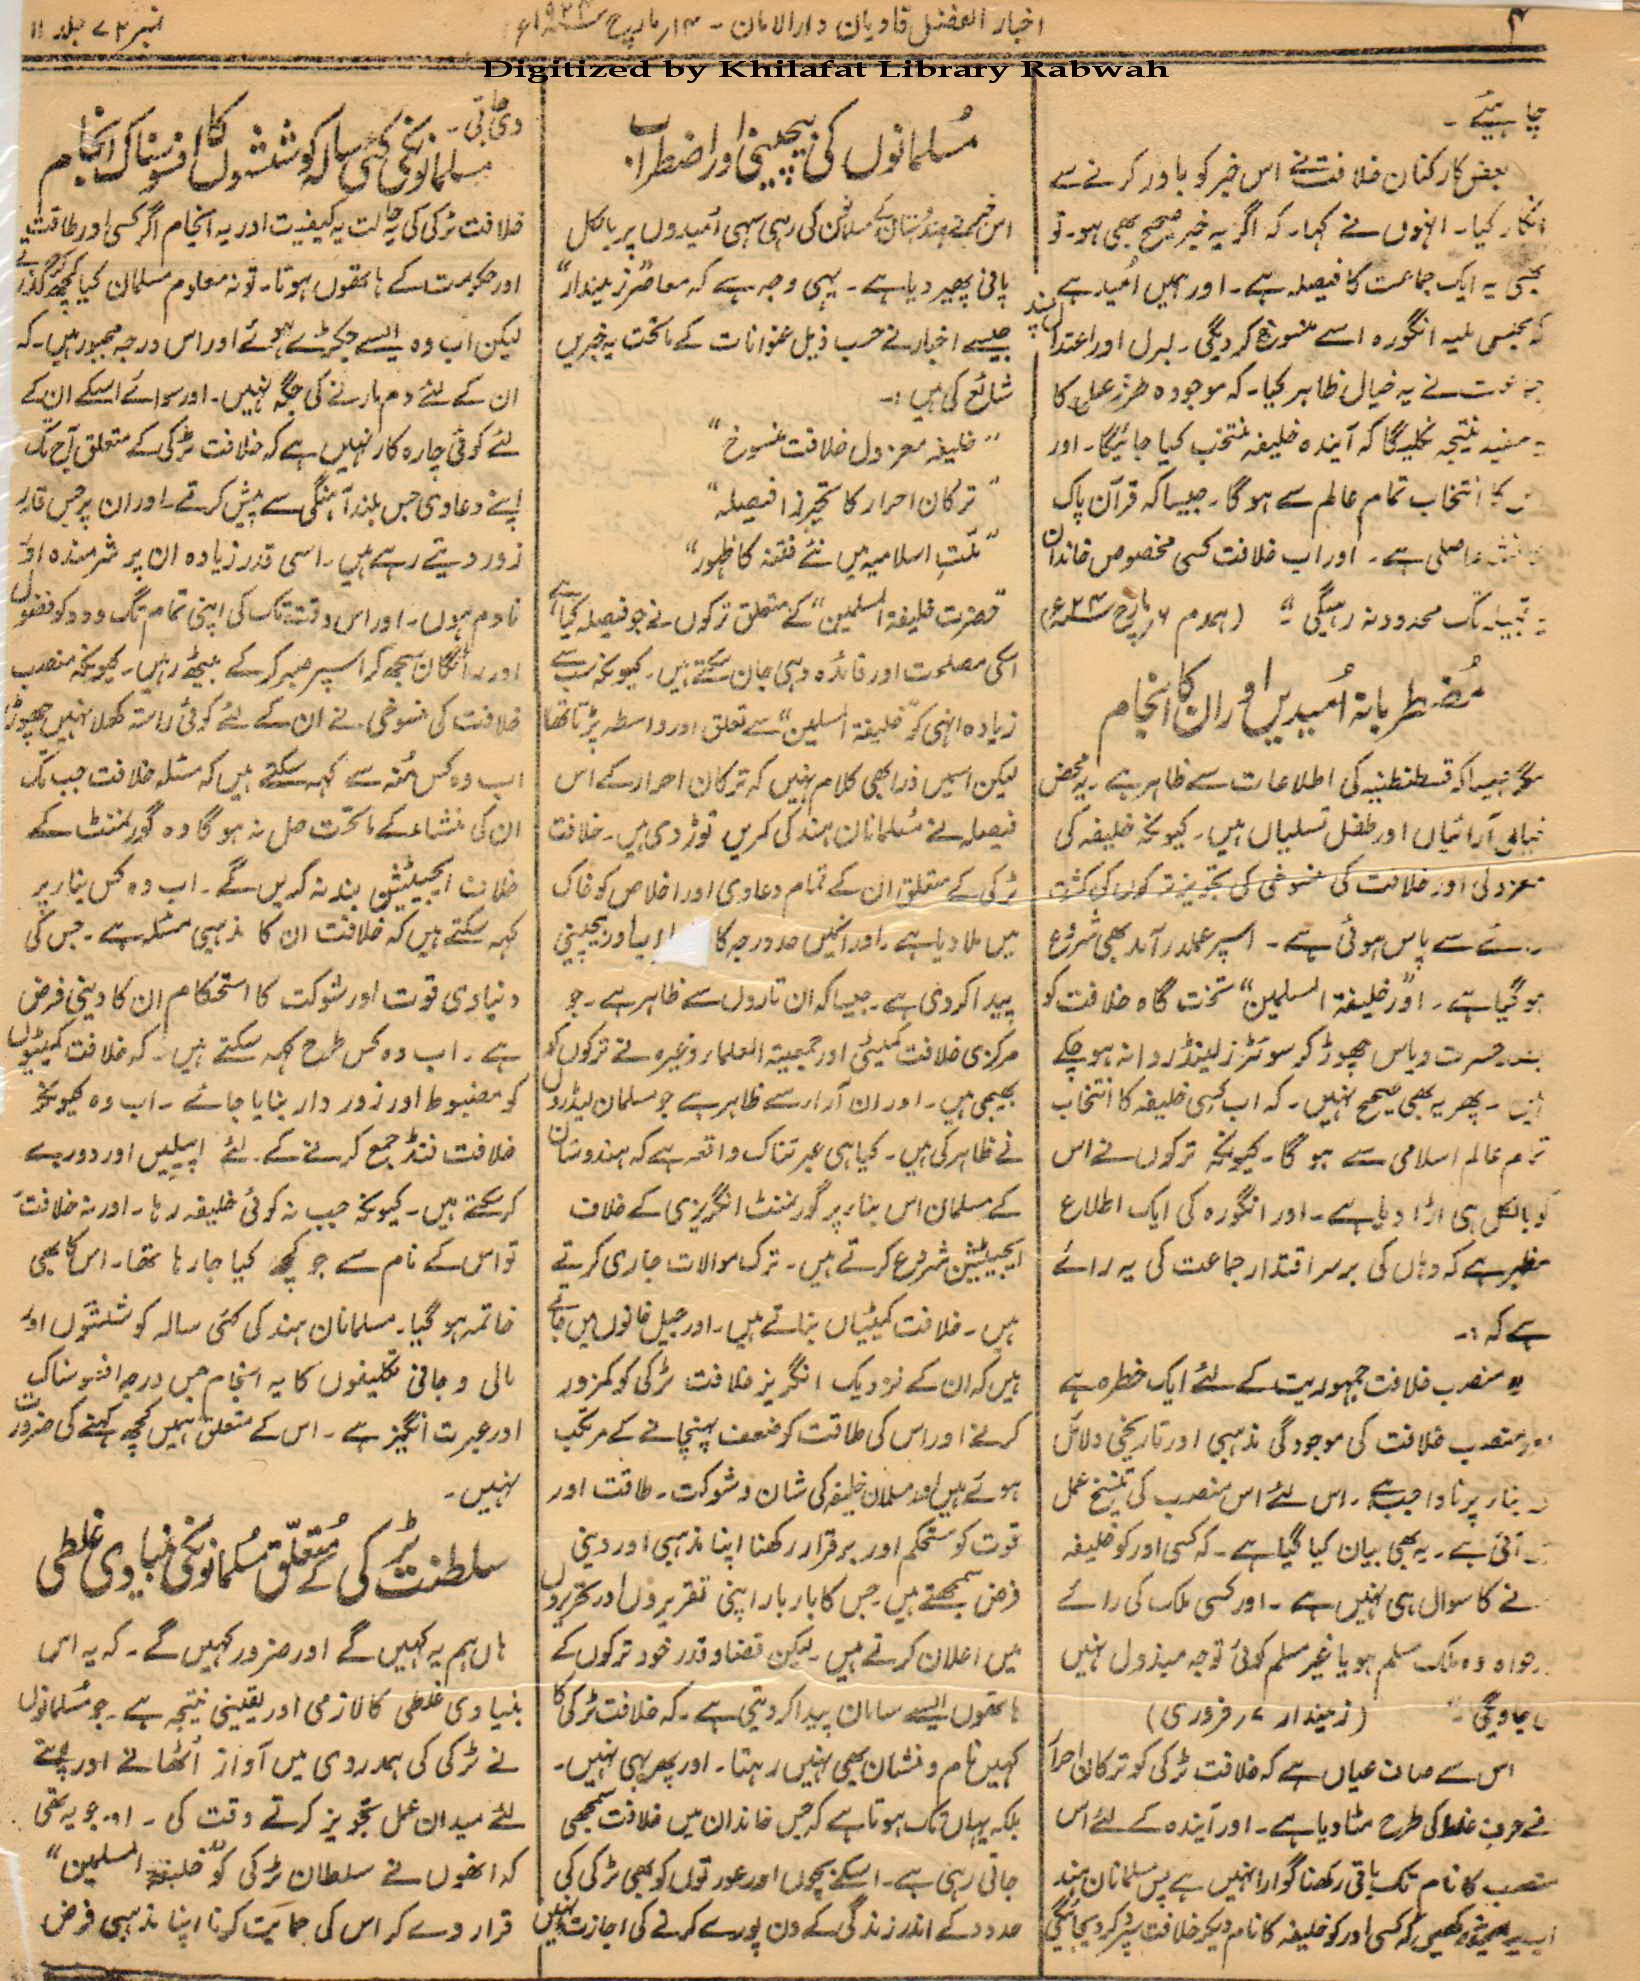 ۴
اخبار الفضل قادیان دارالامان - ۱۴ مارچ ۱۹۲۴ء
نمبر ۷۲ جلد ۱۱
Digitized by Khilafat Library Rabwah
چاہیئے -
بعض کارکنان خلافت نے اس خبر کو باور کرنے سے
انکار کیا - انہوں نے کہا - کہ اگر یہ خبر صحیح بھی ہو - تو
بھی یہ ایک جماعت کا فیصلہ ہے - اور ہمیں اُمید ہے
کہ مجلس ملیہ انگورہ اسے منسوخ کر دیگی - لبرل اور اعتدال پسند
جماعت نے یہ خیال ظاہر کیا - کہ موجودہ طرز عمل کا
مفید نتیجہ نکلیگا کہ آیندہ خلیفہ منتخب کیا جائیگا - اور
کا انتخاب تمام عالم سے ہوگا - جیسا کہ قرآن پاک
اصلی ہے - اور اب خلافت کسی مخصوص خاندان
قبیلہ تک محدود نہ رہیگی - " (ہمدم ۶ مارچ ۲۴ء)
مُضطربانہ اُمیدیں اور ان کا انجام
مگر جیسا کہ قسطنطنیہ کی اطلاعات سے ظاہر ہے - یہ محض
خیالی آرائیاں اور طفل تسلیاں ہیں - کیونکہ خلیفہ کی
معزولی اور خلافت کی منسوخی کی تجویز ترکوں کی کثرت
رائے سے پاس ہوئی ہے - اسپر عملدرآمد بھی شروع
ہو گیا ہے - اور "خلیفۃ المسلمین" تخت گاہ خلافت کو
بصد حسرت و یاس چھوڑ کر سوئٹزرلینڈ روانہ ہو چکے
ہیں - پھر یہ بھی صحیح نہیں - کہ اب کسی خلیفہ کا انتخاب
تمام عالم اسلامی سے ہوگا - کیونکہ ترکوں نے اس
کو بالکل ہی اڑا دیا ہے - اور انگورہ کی ایک اطلاع
مظہر ہے کہ وہاں کی برسر اقتدار جماعت کی یہ رائے
ہے کہ :-
" منصب خلافت جمہوریت کے لئے ایک خطرہ ہے
اور منصب خلافت کی موجودگی مذہبی اور تاریخی دلائل
کی بنا پر ناواجب ہے - اس لئے اس منصب کی تنسیخ عمل
میں آئی ہے - یہ بھی بیان کیا گیا ہے - کہ کسی اور کو خلیفہ
نے کا سوال ہی نہیں ہے - اور کسی ملک کی رائے
خواہ وہ ملک مسلم ہو یا غیر مسلم کوئی توجہ مبذول نہیں
کی جاویگی - " (زمیندار ۷ فروری)
اس سے صاف عیاں ہے کہ خلافت ٹرکی کو ترکان احرار
نے حرف غلط کی طرح مٹا دیا ہے - اور آیندہ کے لئے اس
منصب کا نام تک باقی رکھنا گوارا نہیں ہے پس مسلمانان ہند
یہ امید نہ رکھیں کہ کسی اور کو خلیفہ کا نام دیکر خلافت سپرد کر دیجائیگی
مُسلمانوں کی بیچینی اور اضطراب
اس خبر نے ہندوستان کے مسلمانوں کی رہی سہی اُمیدوں پر بالکل
پانی پھیر دیا ہے - یہی وجہ ہے کہ معاصر "زمیندار"
جیسے اخبار نے حسب ذیل عنوانات کے ماتحت یہ خبریں
شائع کی ہیں :-
" خلیفہ معزول خلافت منسوخ "
" ترکان احرار کا تحیر زا فیصلہ "
" ملّتِ اسلامیہ میں نئے فتنہ کا ظہور "
حضرت خلیفۃ المسلمین " کے متعلق ترکوں نے جو فیصلہ کیا ہے
اسکی مصلحت اور فائدہ وہی جان سکتے ہیں - کیونکہ سب سے
زیادہ انہی کو "خلیفۃ المسلمین" سے تعلق اور واسطہ پڑتا تھا
لیکن اسمیں ذرا بھی کلام نہیں کہ ترکان احرار کے اس
فیصلہ نے مُسلمانان ہند کی کمریں توڑ دی ہیں - خلافت
ٹرکی کے متعلق ان کے تمام دعاوی اور اخلاص کو خاک
میں ملا دیا ہے - اور انہیں حد درجہ کا اور بیچینی
پیدا کر دی ہے - جیسا کہ ان تاروں سے ظاہر ہے - جو
مرکزی خلافت کمیٹی اور جمعیۃ العلماء وغیرہ نے ترکوں کو
بھیجی ہیں - اور ان آراء سے ظاہر ہے جو مسلمان لیڈروں
نے ظاہر کی ہیں - کیا ہی عبرتناک واقعہ ہے کہ ہندوستان
کے مسلمان اس بناء پر گورنمنٹ انگریزی کے خلاف
ایجیٹیشن شروع کرتے ہیں - ترک موالات جاری کرتے
ہیں - خلافت کمیٹیاں بناتے ہیں - اور جیل خانوں میں جاتے
ہیں کہ ان کے نزدیک انگریز خلافت ٹرکی کو کمزور
کرنے اور اس کی طاقت کو ضعف پہنچانے کے مرتکب
ہوئے ہیں اور مسلمان خلیفہ کی شان و شوکت - طاقت اور
قوت کو مستحکم اور برقرار رکھنا اپنا مذہبی اور دینی
فرض سمجھتے ہیں جس کا بار بار اپنی تقریروں اور تحریروں
میں اعلان کرتے ہیں - لیکن قضا و قدر خود ترکوں کے
ہاتھوں ایسے سامان پیدا کر دیتی ہے - کہ خلافت ٹرکی کا
کہیں نام و نشان بھی نہیں رہتا - اور پھر یہی نہیں -
بلکہ یہاں تک ہوتا ہے کہ جس خاندان میں خلافت سمجھی
جاتی رہی ہے - اسکے بچوں اور عورتوں کو بھی ٹرکی کی
حدود کے اندر زندگی کے دن پورے کرنے کی اجازت نہیں
دی جاتی -
مسلمانوں کی کئی سالہ کوششوں کا افسوسناک انجام
خلافت ٹرکی کی یہ حالت یہ کیفیت اور یہ انجام اگر کسی اور طاقت
اور حکومت کے ہاتھوں ہوتا - تو نہ معلوم مسلمان کیا کچھ کر گذرتے
لیکن اب وہ ایسے جکڑے ہوئے اور اس درجہ مجبور ہیں - کہ
ان کے لئے دم مارنے کی جگہ نہیں - اور سوائے اسکے ان کے
لئے کوئی چارہ کار نہیں ہے کہ خلافت ٹرکی کے متعلق آج تک
اپنے دعاوی جس بلند آہنگی سے پیش کرتے - اور ان پر جس قدر
زور دیتے رہے ہیں - اسی قدر زیادہ ان پر شرمندہ اور
نادم ہوں - اور اس وقت تک کی اپنی تمام تگ و دو کو فضول
اور رائگاں سمجھ کر اسپر صبر کر کے بیٹھے رہیں - کیونکہ منصب
خلافت کی منسوخی نے ان کے لئے کوئی راستہ کھلا نہیں چھوڑا
اب وہ کس مُنہ سے کہہ سکتے ہیں کہ مسئلہ خلافت جب تک
ان کی منشاء کے ماتحت حل نہ ہوگا وہ گورنمنٹ کے
خلاف ایجیٹیشن بند نہ کریں گے - اب وہ کس بناء پر
کہہ سکتے ہیں کہ خلافت ان کا مذہبی مسئلہ ہے - جس کی
دنیاوی قوت اور شوکت کا استحکام ان کا دینی فرض
ہے - اب وہ کس طرح کہہ سکتے ہیں - کہ خلافت کمیٹیوں
کو مضبوط اور زوردار بنایا جائے - اب وہ کیونکر
خلافت فنڈ جمع کرنے کے لئے اپیلیں اور دورے
کر سکتے ہیں - کیونکہ جب نہ کوئی خلیفہ رہا - اور نہ خلافت
تو اس کے نام سے جو کچھ کیا جا رہا تھا - اس کا بھی
خاتمہ ہو گیا - مسلمانان ہند کی کئی سالہ کوششوں اور
مالی و جانی تکلیفوں کا یہ انجام جس درجہ افسوسناک
اور عبرت انگیز ہے - اس کے متعلق ہمیں کچھ کہنے کی ضرورت
نہیں -
سلطنت ٹرکی کے مُتعلّق مُسلمانوں کی بنیاوی غلطی
ہاں ہم یہ کہیں گے اور ضرور کہیں گے - کہ یہ اس
بنیادی غلطی کا لازمی اور یقینی نتیجہ ہے - جو مُسلمانوں
نے ٹرکی کی ہمدردی میں آواز اُٹھانے اور اپنے
لئے میدان عمل تجویز کرتے وقت کی - اور جو یہ تھی
کہ انھوں نے سلطان ٹرکی کو "خلیفۃ المسلمین"
قرار دے کر اس کی حمایت کرنا اپنا مذہبی فرض